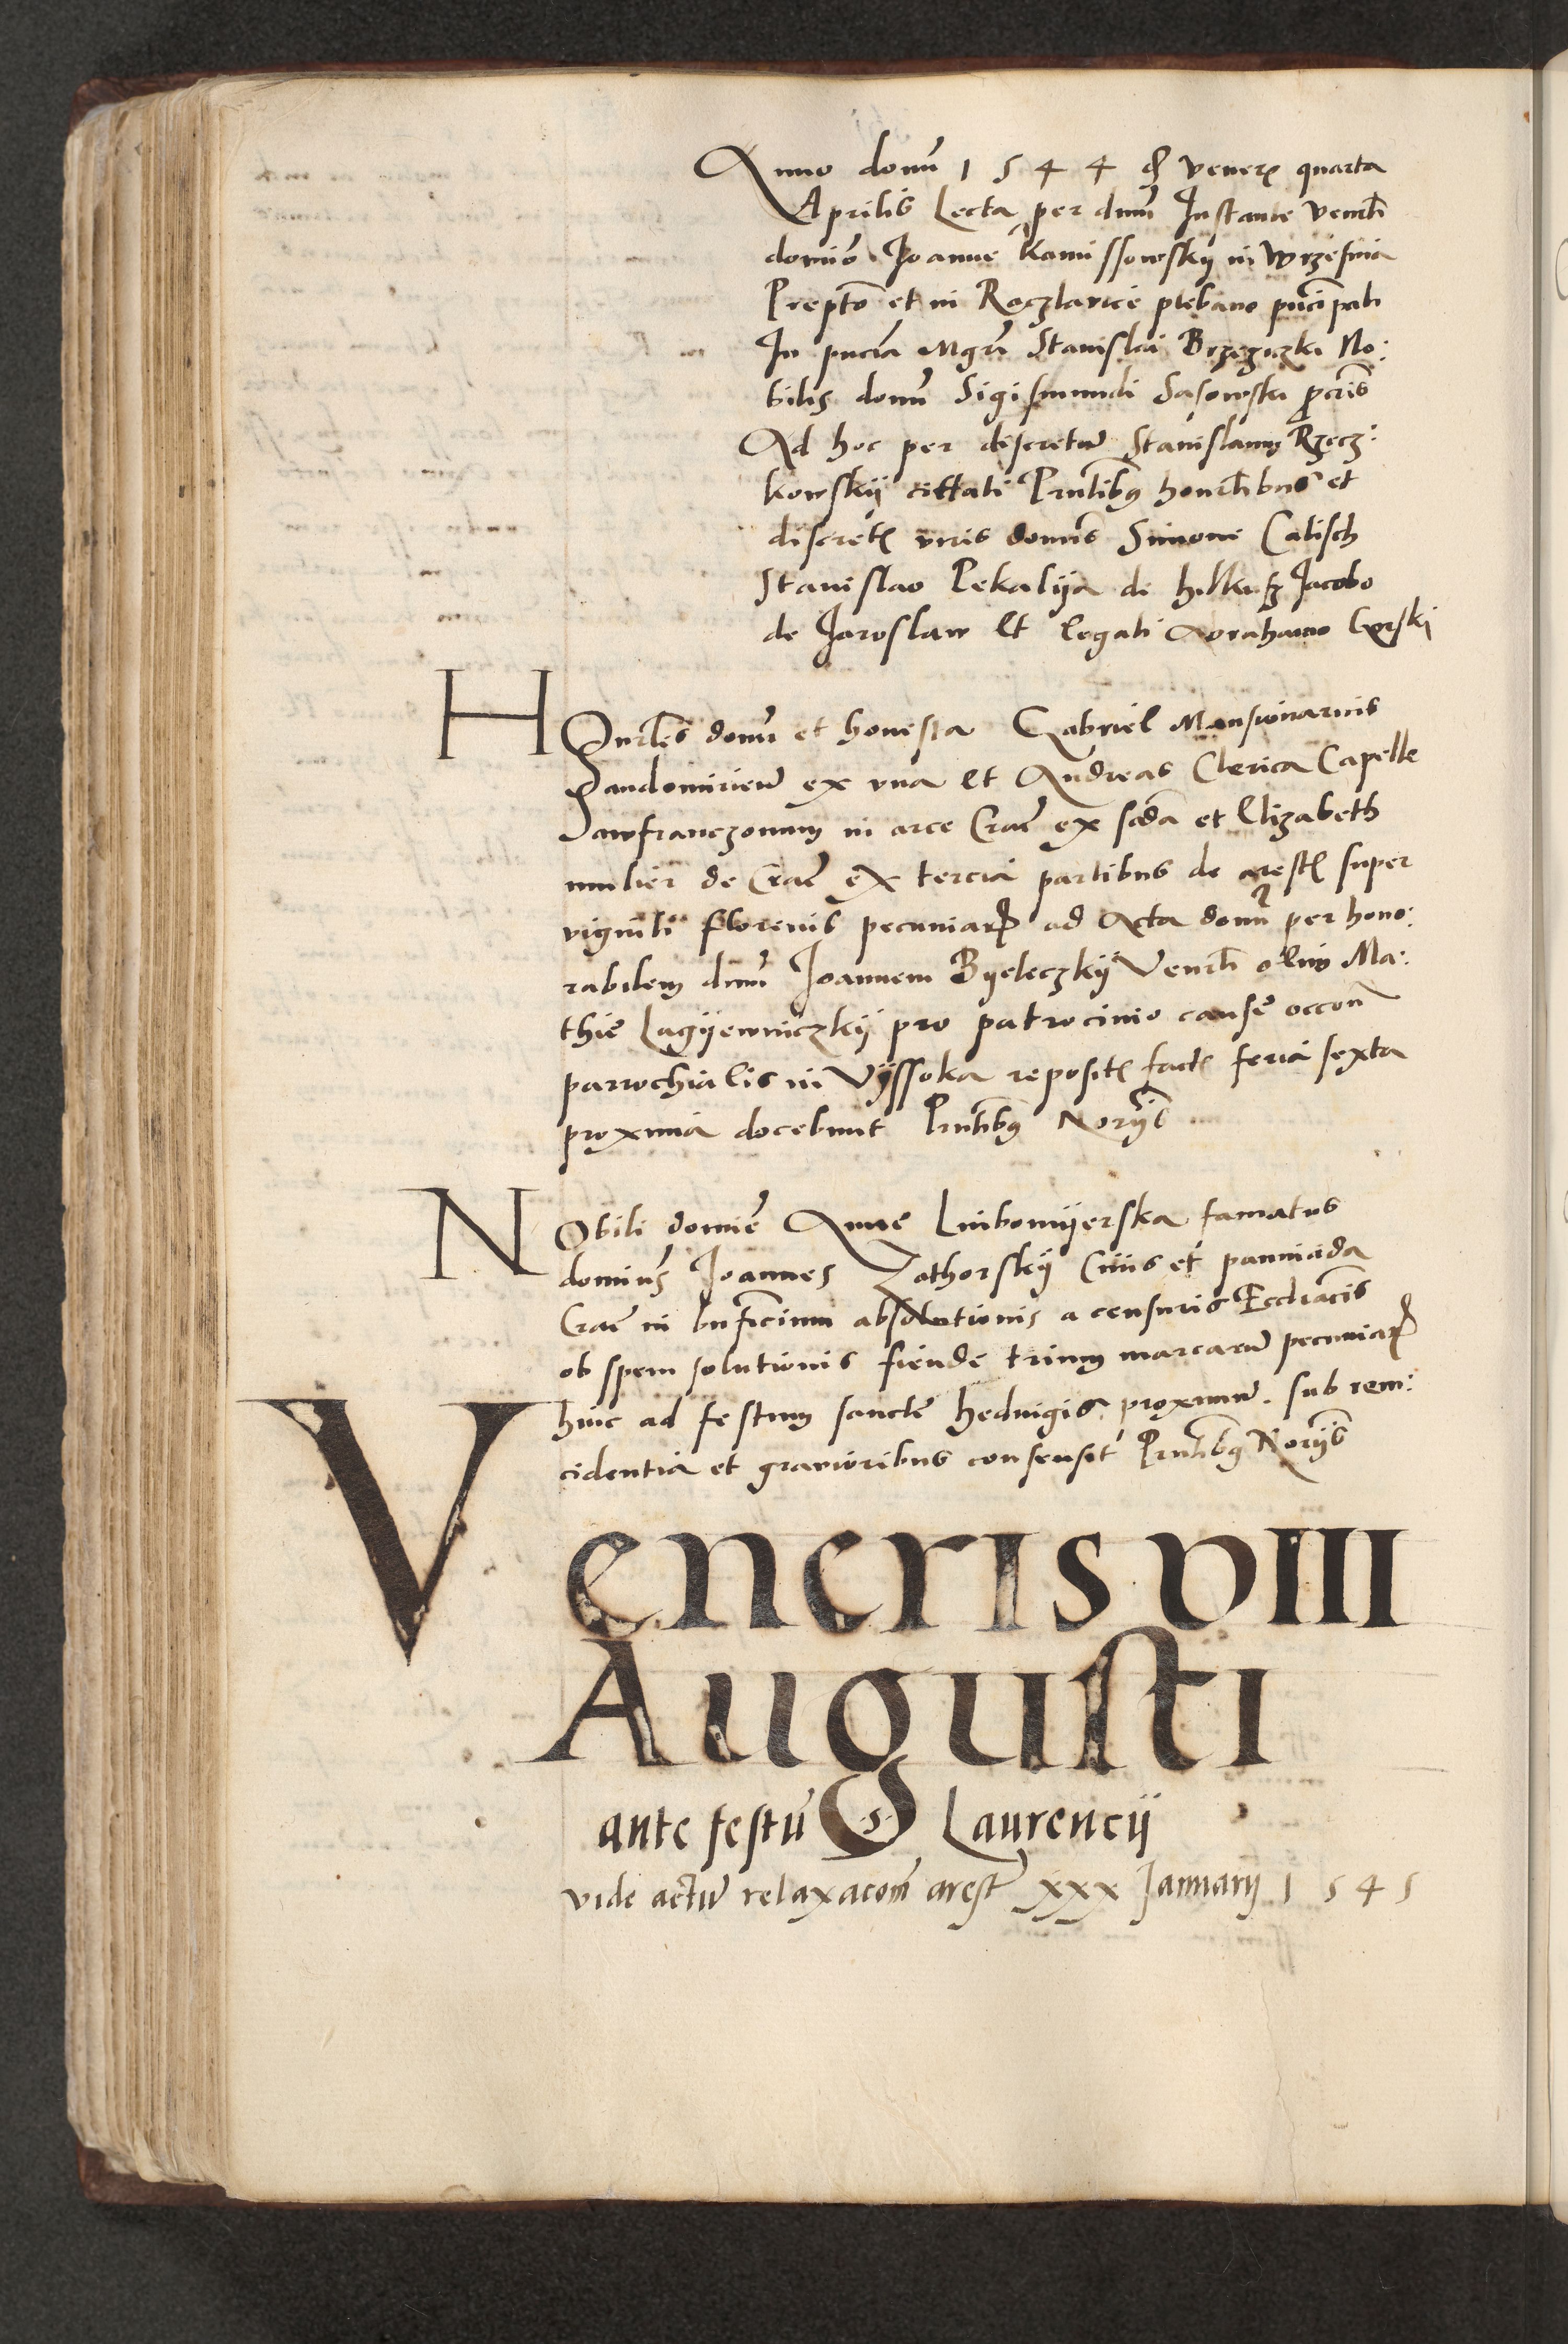 Anno domi 1544 die veneris quarta
Aprilis Lecta per dnm Instante venerli
domino Joanne Kamissowsky in Wrzesnia
Prepto et in Raczlavice plebano principali
In pncia Mgri Stanislai Brzeziczki No:
bilis domi Sigismundi Sasowski procris
Ad hoc per discretum Stanislaum Rzecz:
kowskÿ cittati Pntibus honorlibus et
discretis viris domis Simone Calisch
Stanislao Pekalÿa de Ilkusz Jacobo
de Jaroslaw Et legati Abrahamo Gorski
HOnorles domi et honesta Gabriel Mansionarius
Sandomirien ex vna Et Andreas Clerica Capelle
Gawfranczonum in arce Crac ex scda et Elizabeth
mulier de Crac ex tercia partibus de arestis super
viginti florenis pecuniarum ad Acta domi per hono:
rabilem dnm Joannem Bÿeleczkÿ Venerli olim Ma:
thie Lagÿewniczkÿ pro patrocinio cause occone
parrochialis in Vÿssoka repositis factis feria sexta
proxima docebunt Pntibus Norÿs
NObili domine Anne Lubomÿerska famatus
dominus Joannes Zathorskÿ Civis et pannicida
Crac in bnficium absolutionis a censuris Eccliacis
ob spem solutionis fiende trium marcarum pecuniarum
hinc ad festum sancte hedvigis proximum. sub rein:
cidentia et gravioribus consensit Pntibus Norÿs
Veneris VIII
Augusti
ante festu S Laurencÿ
vide actum relaxacom arest xxx Januarÿ 1545